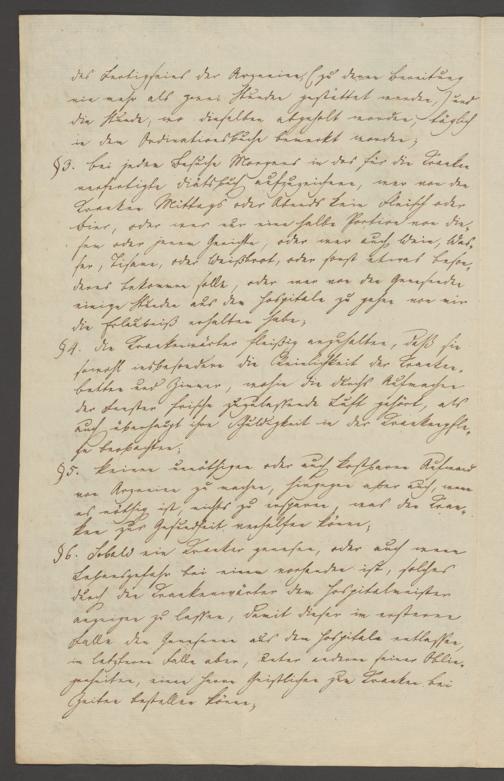 des Fertigseins der Arzneien, (zu deren Bereitung
nie mehr als zwei Stunden gestattet werden,) und
die Stunde, wo dieselben abgeholt worden, täglich
in dem Ordinationsbuche bemerkt werden;
§3. bei jedem Besuche Morgens in das für die Kranken
verfertigte Diätbuch aufzuzeichnen, wer von den
Kranken Mittags oder Abends kein Fleisch oder
Bier, oder wer nur eine halbe Portion von die-
sem oder jenem Genusse, oder wer auch Wein, Was-
ser, Tisane, oder Weißbrot, oder sonst etwas beson-
deres bekommen solle, oder wer von den Genesenden
einige Stunden aus dem Hospitale zu gehen von mir
die Erlaubniß erhalten habe;
§4. die Krankenwärter fleißig anzuhalten, daß sie
sowohl insbesondere die Reinlichkeit der Kranken-
betten und Zimmer, wohin die durchs Aufmachen
der Fenster frische zuzulassende Luft gehört, als
auch überhaupt ihre Schuldigkeit in der Krankenpfle-
ge beobachten;
§5. keinen unnöthigen oder auch kostbaren Aufwand
von Arzneien zu machen, hingegen aber auch, wenn
es nöthig ist, nichts zu ersparen, was den Kran-
ken zur Gesundheit verhelfen könne;
§6. Sobald ein Kranker genesen, oder auch wenn
Lebensgefahr bei einem vorhanden ist, solches
durch den Krankenwärter dem Hospitalmeister
anzeigen zu lassen, damit dieser im ersteren
Falle den Genesenen aus dem Hospitale entlassen,
im letzteren Falle aber, unter andern seiner Oblie-
genheiten, einen Herrn Geistlichen zum Kranken bei
Zeiten bestellen könne;